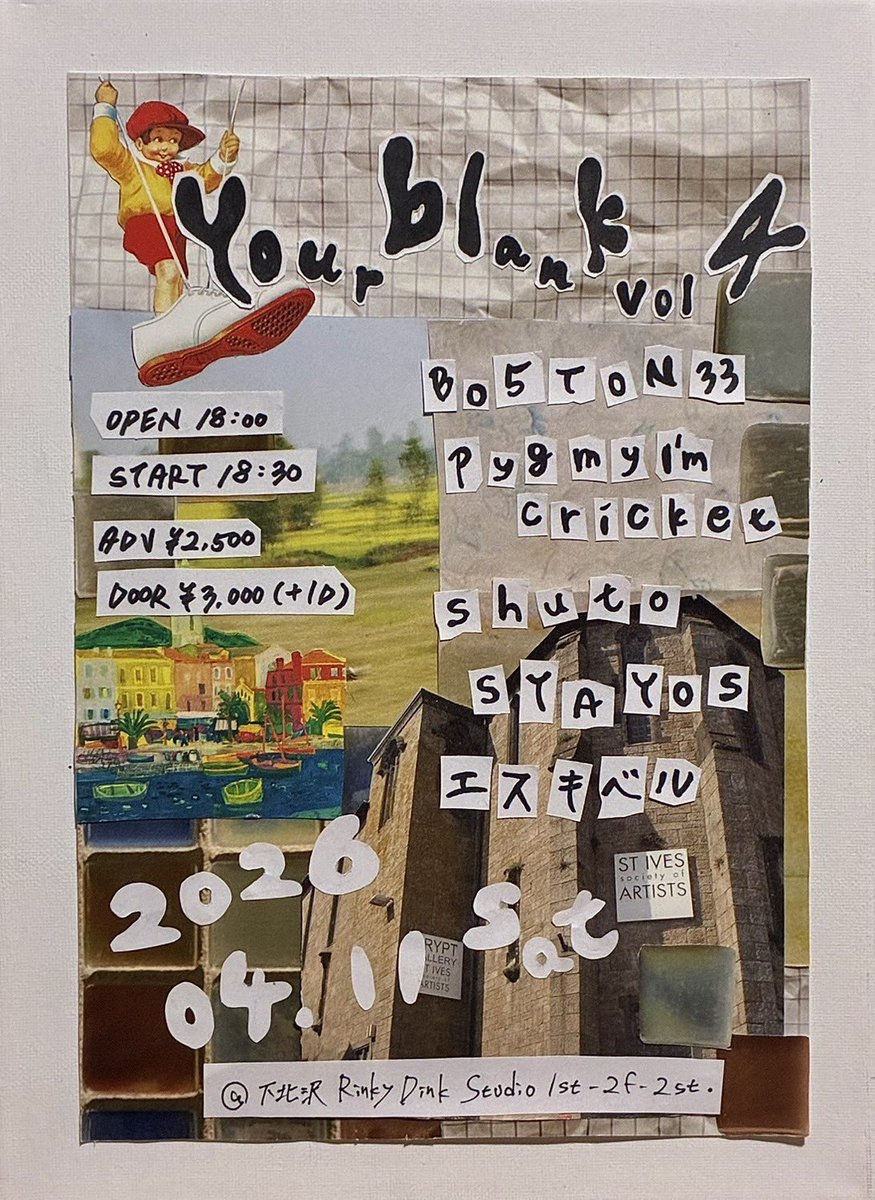 Your blank vol 4
OPEN 18:00
START 18:30
ADV ¥2,500
DOOR ¥3,000 (+1D)
Bo5TON33
Pygmy I'm
cricket
shuto
STAYOS
エスキベル
2026
04.11 Sat
ST IVES
society of
ARTISTS
RYPT
ALLERY
ST IVES
society of
ARTISTS
@下北沢 Rinky Dink Studio 1st-2f-2st.